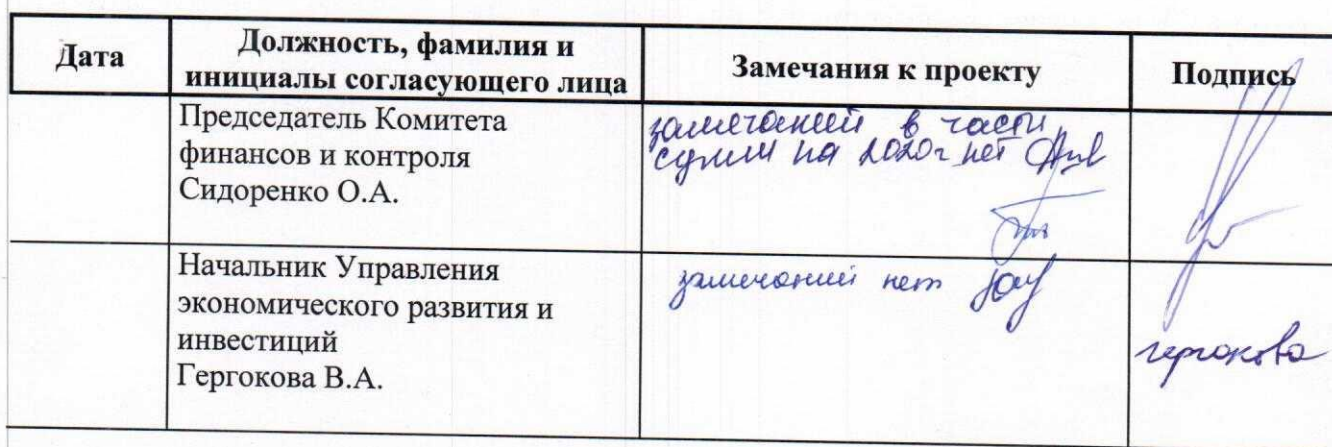 Дата
Должность, фамилия и
инициалы согласующего лица
Замечания к проекту
Подпись
Председатель Комитета
финансов и контроля
Сидоренко О.А.
замечаний в части
сумм на 2020г нет
Начальник Управления
экономического развития и
инвестиций
Гергокова В.А.
замечаний нет
гергокова